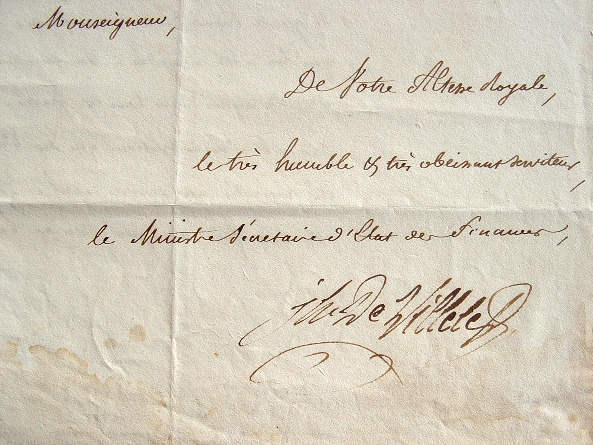 Monseigneur,
De Votre Altesse Royale,
le très humble & très obéissant serviteur,
le Ministre Sécretaire d'Etat des Finances,
jh De Villele